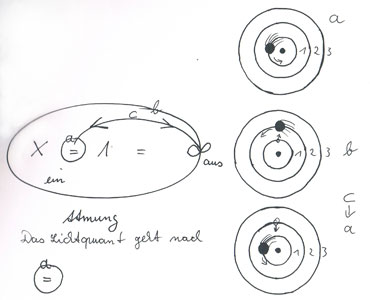 a
1 2 3
c b
X a = 1 =
aus
ein
1 2 3
b
Atmung
Das Lichtquant geht nach
c
a
1 2 3
a
=